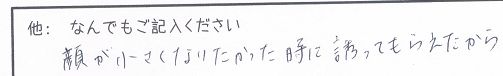 他： なんでもご記入ください
顔が小さくなりたかった時に誘ってもらえたから